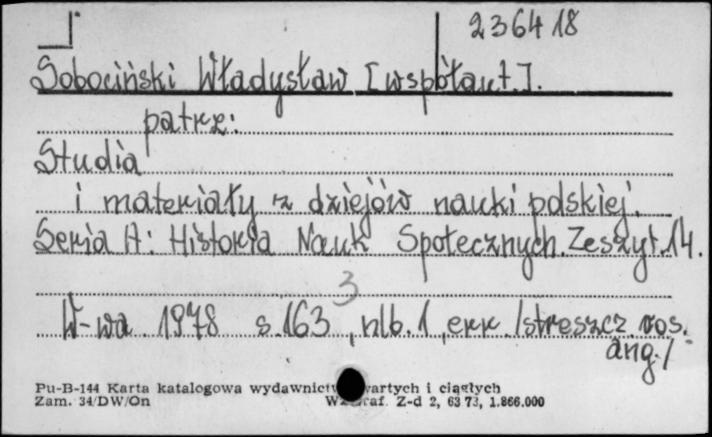 236418
Sobociński Władysław [współaut.].
patrz:
Studia
i materiały z dziejów nauki polskiej.
Seria A: Historia Nauk Społecznych. Zeszyt 14.
3
W-wa 1978 s. 163, nlb. 1, err. /streszcz. ros.
ang./
Pu-B-144 Karta katalogowa wydawnictw zwartych i ciągłych
Zam. 34/DW/On Z-d 2, 63 73, 1.866.000